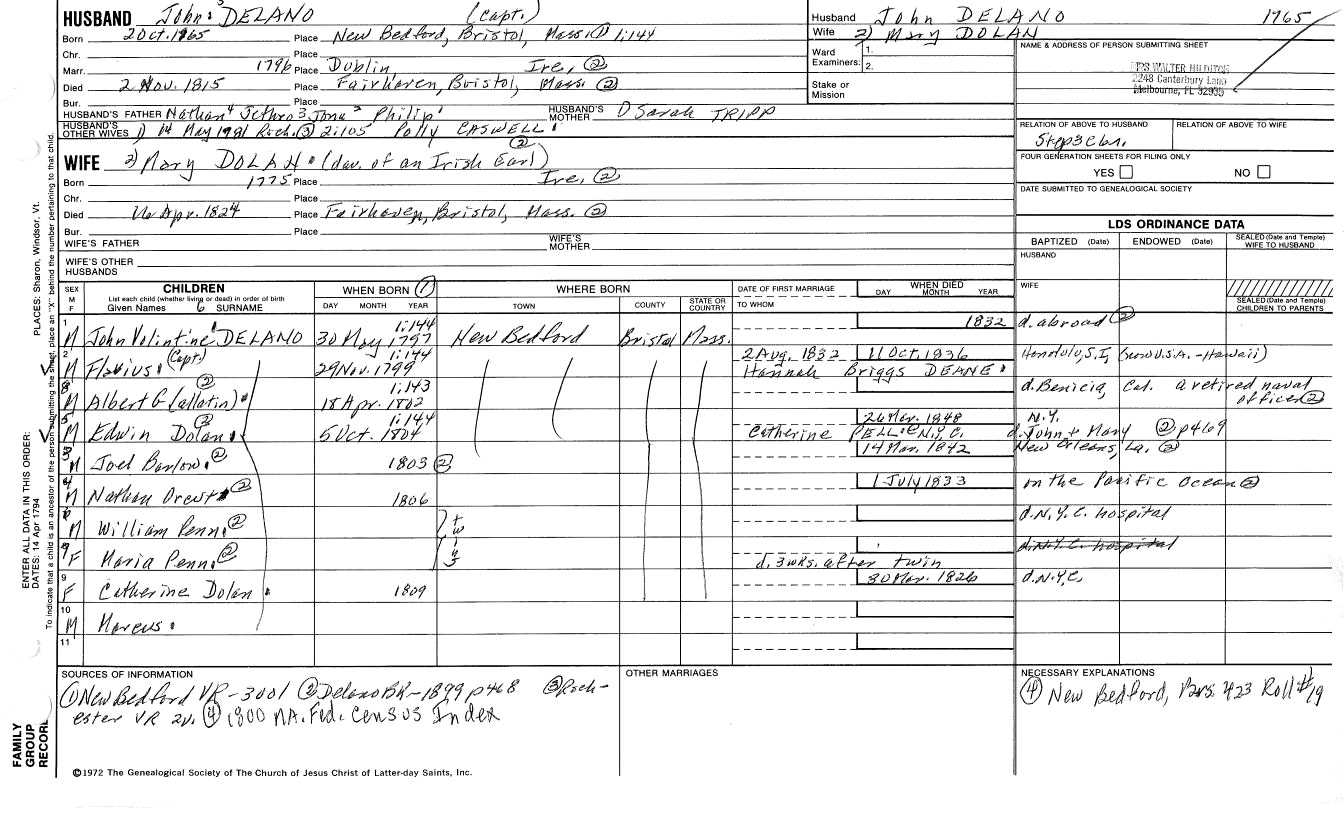 HUSBAND John⁵ DELANO (Capt.)
Born 2 Oct. 1765 Place New Bedford, Bristol, Mass. ① 1:144
Chr. Place
Marr. 1796 Place Dublin, Ire, ②
Died 2 Nov. 1815 Place Fairhaven, Bristol, Mass. ②
Bur. Place
HUSBAND'S FATHER Nathan⁴ Jethro³ Jona² Philip¹ HUSBAND'S MOTHER Sarah TRIPP
HUSBAND'S OTHER WIVES 1) May 1781 Roch. ③ 2:105 Polly CASWELL
WIFE 2) Mary DOLAN (dau. of an Irish Earl) ②
Born 1775 Place Ire, ②
Chr. Place
Died Apr. 1824 Place Fairhaven, Bristol, Mass. ②
Bur. Place
WIFE'S FATHER WIFE'S MOTHER
WIFE'S OTHER HUSBANDS
Husband John DELANO 1765
Wife 2) Mary DOLAN
Ward Examiners: 1. 2.
Stake or Mission
NAME & ADDRESS OF PERSON SUBMITTING SHEET
WALTER
2248 Canterbury Lane
Melbourne, FL 32935
RELATION OF ABOVE TO HUSBAND RELATION OF ABOVE TO WIFE
FOUR GENERATION SHEETS FOR FILING ONLY
YES NO
DATE SUBMITTED TO GENEALOGICAL SOCIETY
LDS ORDINANCE DATA
BAPTIZED (Date) ENDOWED (Date) SEALED (Date and Temple) WIFE TO HUSBAND
HUSBAND
WIFE
SEALED (Date and Temple) CHILDREN TO PARENTS
SEX M F CHILDREN List each child (whether living or dead) in order of birth Given Names 6 SURNAME WHEN BORN ① DAY MONTH YEAR WHERE BORN TOWN COUNTY STATE OR COUNTRY DATE OF FIRST MARRIAGE TO WHOM WHEN DIED DAY MONTH YEAR
1 M John Volintine DELANO 30 May 1797 1:144 New Bedford Bristol Mass. 1832 d. abroad ②
2 M Flavius (Capt.) 29 Nov. 1799 1:144 2 Aug. 1832 Hannah Briggs DEANE 11 Oct. 1836 Honolulu, S.I, (now U.S.A. - Hawaii)
M Albert G(allatin) ② 18 Apr. 1802 1:143 d. Benicia, Cal. a retired naval officer ②
M Edwin Dolan ② 5 Oct. 1804 1:144 Catherine PELL N.Y.C. 26 Mar. 1848 N.Y. d. John + Mary ② p469
M Joel Barlow ② 1803 ② 14 Mar. 1842 New Orleans, La. ②
M Nathan ② 1806 1 July 1833 on the Pacific Ocean ②
M William Penn ② twins d. N.Y.C. hospital
F Maria Penn ② d. 3 wks. after twin d. N.Y.C. hospital
9 F Catherine Dolan 1809 30 Mar. 1826 d. N.Y.C.
10 M Marcus
11
SOURCES OF INFORMATION
① New Bedford VR - 3001 ② Delano BK - 1899 p468 ③ Roch-
ester VR 2v. ④ 1800 MA. Fed. Census Index
OTHER MARRIAGES
NECESSARY EXPLANATIONS
④ New Bedford, Brs. 423 Roll #19
©1972 The Genealogical Society of The Church of Jesus Christ of Latter-day Saints, Inc.
FAMILY GROUP RECORD
ENTER ALL DATA IN THIS ORDER:
DATES: 14 Apr 1794
PLACES: Sharon, Windsor, Vt.
To indicate that a child is an ancestor of the person submitting the sheet, place an "X" behind the number pertaining to that child.